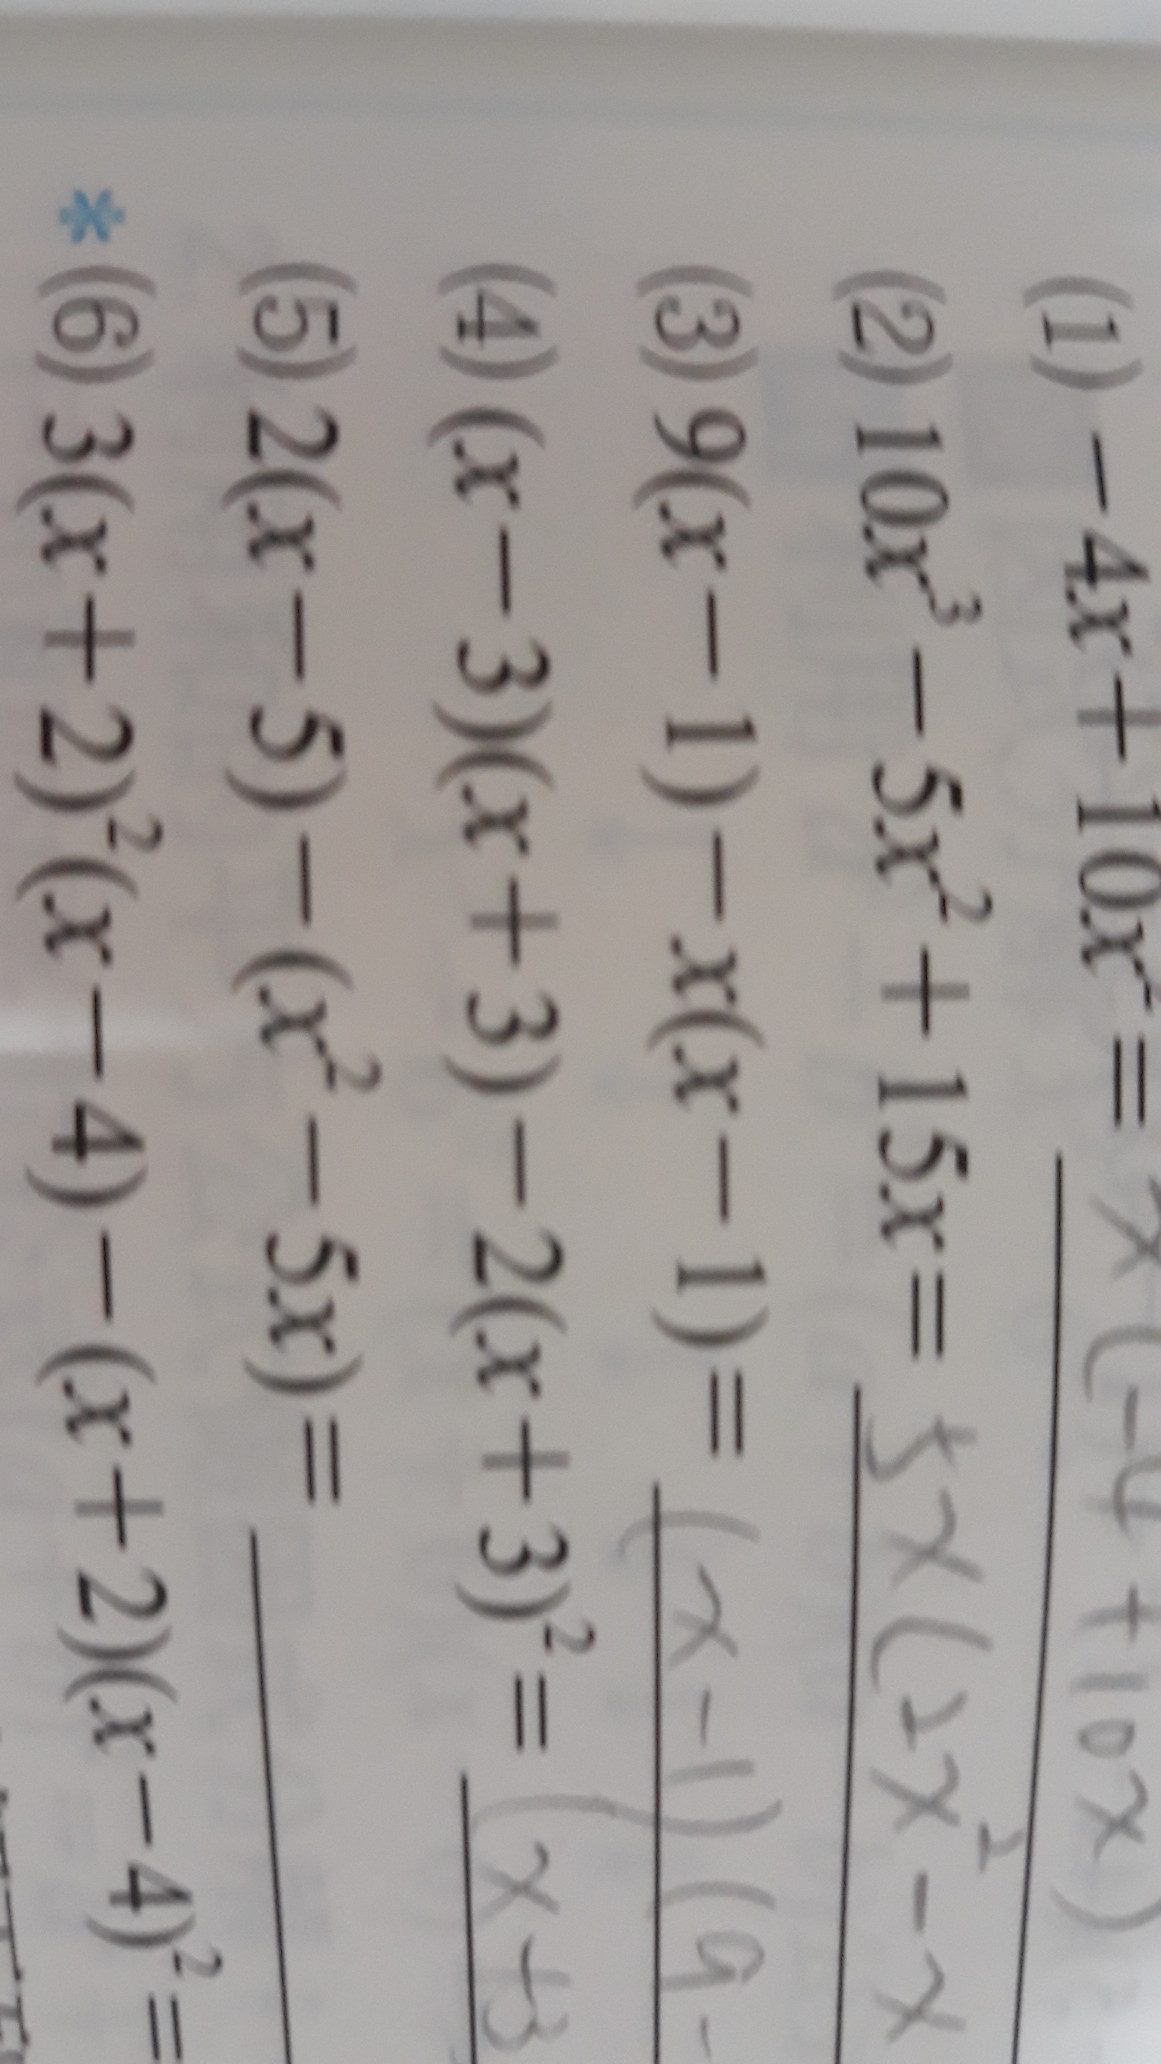 (1) -4x+10x²= x(-4+10x)
(2) 10x³-5x²+15x= 5x(2x²-x
(3) 9(x-1)-x(x-1)= (x-1)(9-
(4) (x-3)(x+3)-2(x+3)²= (x+3
(5) 2(x-5)-(x²-5x)=
*(6) 3(x+2)²(x-4)-(x+2)(x-4)²=